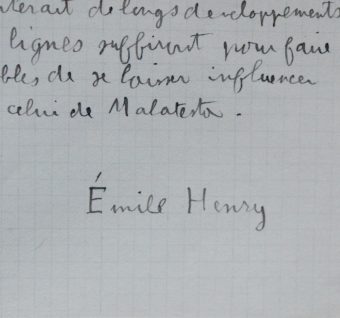 nterait de longs developpements
lignes suffiront pour faire
bles, de se laisser influencer
celui de Malatesta.
Émile Henry